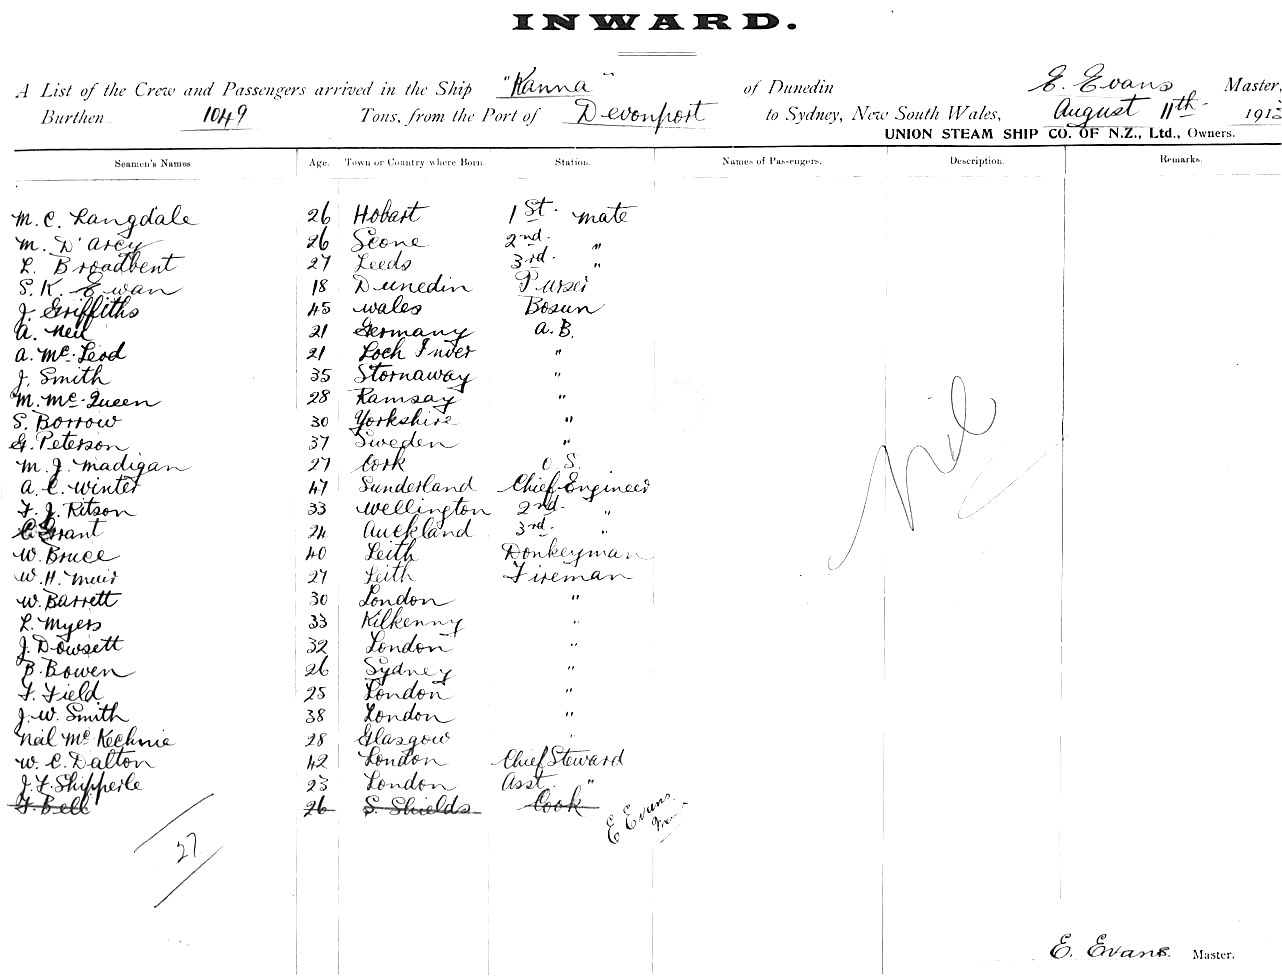 INWARD.
A List of the Crew and Passengers arrived in the Ship "Kanna" of Dunedin E. Evans Master,
Burthen 1049 Tons, from the Port of Devonport to Sydney, New South Wales, August 11th 191
UNION STEAM SHIP CO. OF N.Z., Ltd., Owners.
Seamen's Names Age. Town or Country where Born. Station. Names of Passengers. Description. Remarks.
M. C. Langdale 26 Hobart 1st. mate
M. D'Arcy 26 Scone 2nd. "
L. Broadbent 27 Leeds 3rd. "
S. K. Ewan 18 Dunedin Purser
J. Griffiths 45 Wales Bosun
A. Neil 21 Germany A.B.
A. McLeod 21 Loch Inver "
J. Smith 35 Stornaway "
M. McQueen 28 Ramsay "
S. Borrow 30 Yorkshire "
G. Peterson 37 Sweden "
M. J. Madigan 27 Cork O.S.
A. C. Winter 47 Sunderland Chief Engineer
F. J. Ritson 33 Wellington 2nd. "
C. Grant 24 Auckland 3rd. "
W. Bruce 40 Leith Donkeyman
W. H. Muir 27 Leith Fireman
W. Barrett 30 London "
L. Myers 33 Kilkenny "
J. Dowsett 32 London "
B. Bowen 26 Sydney "
F. Field 25 London "
J. W. Smith 38 London "
Neil McKechnie 28 Glasgow "
W. C. Dalton 42 London Chief Steward
J. F. Shipperle 23 London Asst. "
F. Bell 26 S. Shields Cook
E Evans
Nil
27
E. Evans. Master.